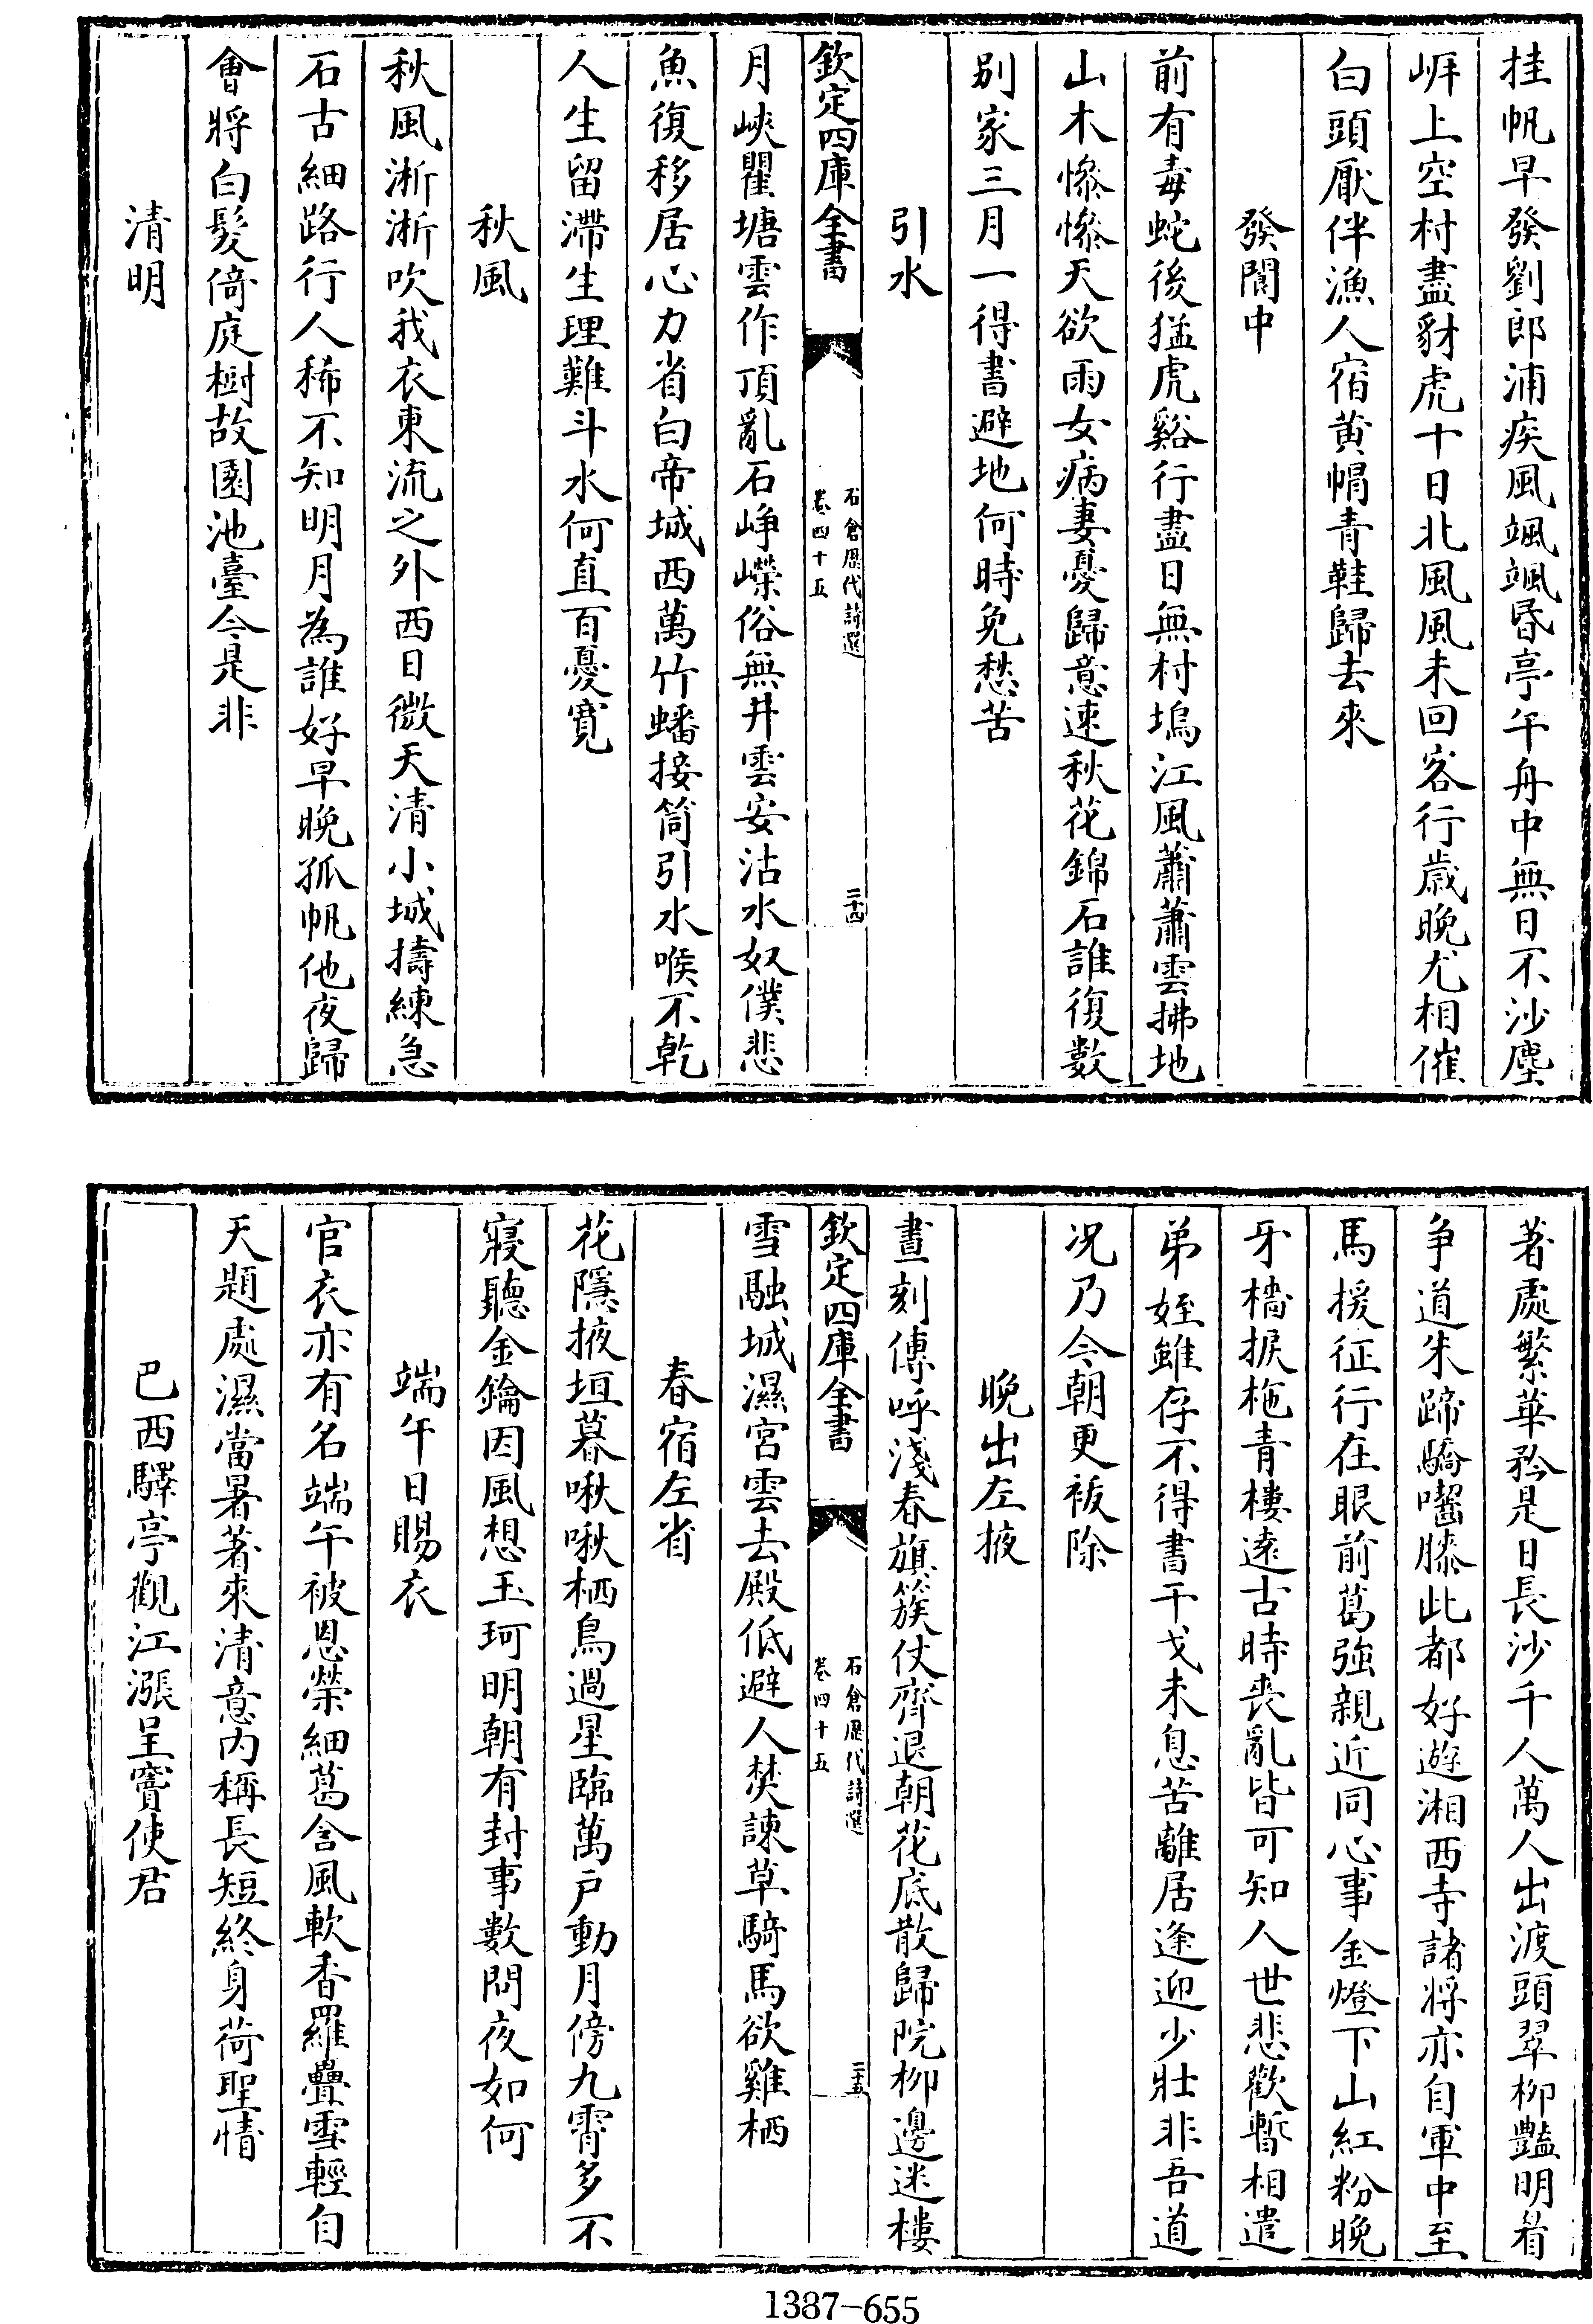 挂帆早發劉郎浦疾風颯颯昏亭午舟中無日不沙塵
岍上空村盡豺虎十日北風風未回客行歲晚尤相催
白頭厭伴漁人宿黄帽青鞋歸去來
發閬中
前有毒蛇後猛虎谿行盡日無村塢江風蕭蕭雲拂地
山木慘慘天欲雨女病妻憂歸意速秋花錦石誰復數
别家三月一得書避地何時免愁苦
引水
欽定四庫全書
石倉歴代詩選
卷四十五
二十四
月峽瞿塘雲作頂亂石崢嶸俗無井雲安沽水奴僕悲
魚復移居心力省白帝城西萬竹蟠接筒引水喉不乾
人生留滯生理難斗水何直百憂寛
秋風
秋風淅淅吹我衣東流之外西日微天清小城擣練急
石古細路行人稀不知明月為誰好早晚孤帆他夜歸
會將白髪倚庭樹故園池臺今是非
清明
著處繁華矜是日長沙千人萬人出渡頭翠柳豔明眉
争道朱蹄驕嚙膝此都好遊湘西寺諸將亦自軍中至
馬援征行在眼前葛強親近同心事金燈下山紅粉晚
牙檣捩柂青樓遠古時喪亂皆可知人世悲歡暫相遣
弟姪雖存不得書干戈未息苦離居逢迎少壯非吾道
况乃今朝更祓除
晚出左掖
晝刻傳呼淺春旗簇仗齊退朝花底散歸院柳邊迷樓
欽定四庫全書
石倉歴代詩選
卷四十五
二十五
雪融城濕宮雲去殿低避人焚諫草騎馬欲雞栖
春宿左省
花隱掖垣暮啾啾栖鳥過星臨萬户動月傍九霄多不
寢聽金鑰因風想玉珂明朝有封事數問夜如何
端午日賜衣
官衣亦有名端午被恩榮細葛含風軟香羅疊雪輕自
天題處濕當暑著來清意内稱長短終身荷聖情
巴西驛亭觀江漲呈竇使君
1387-655